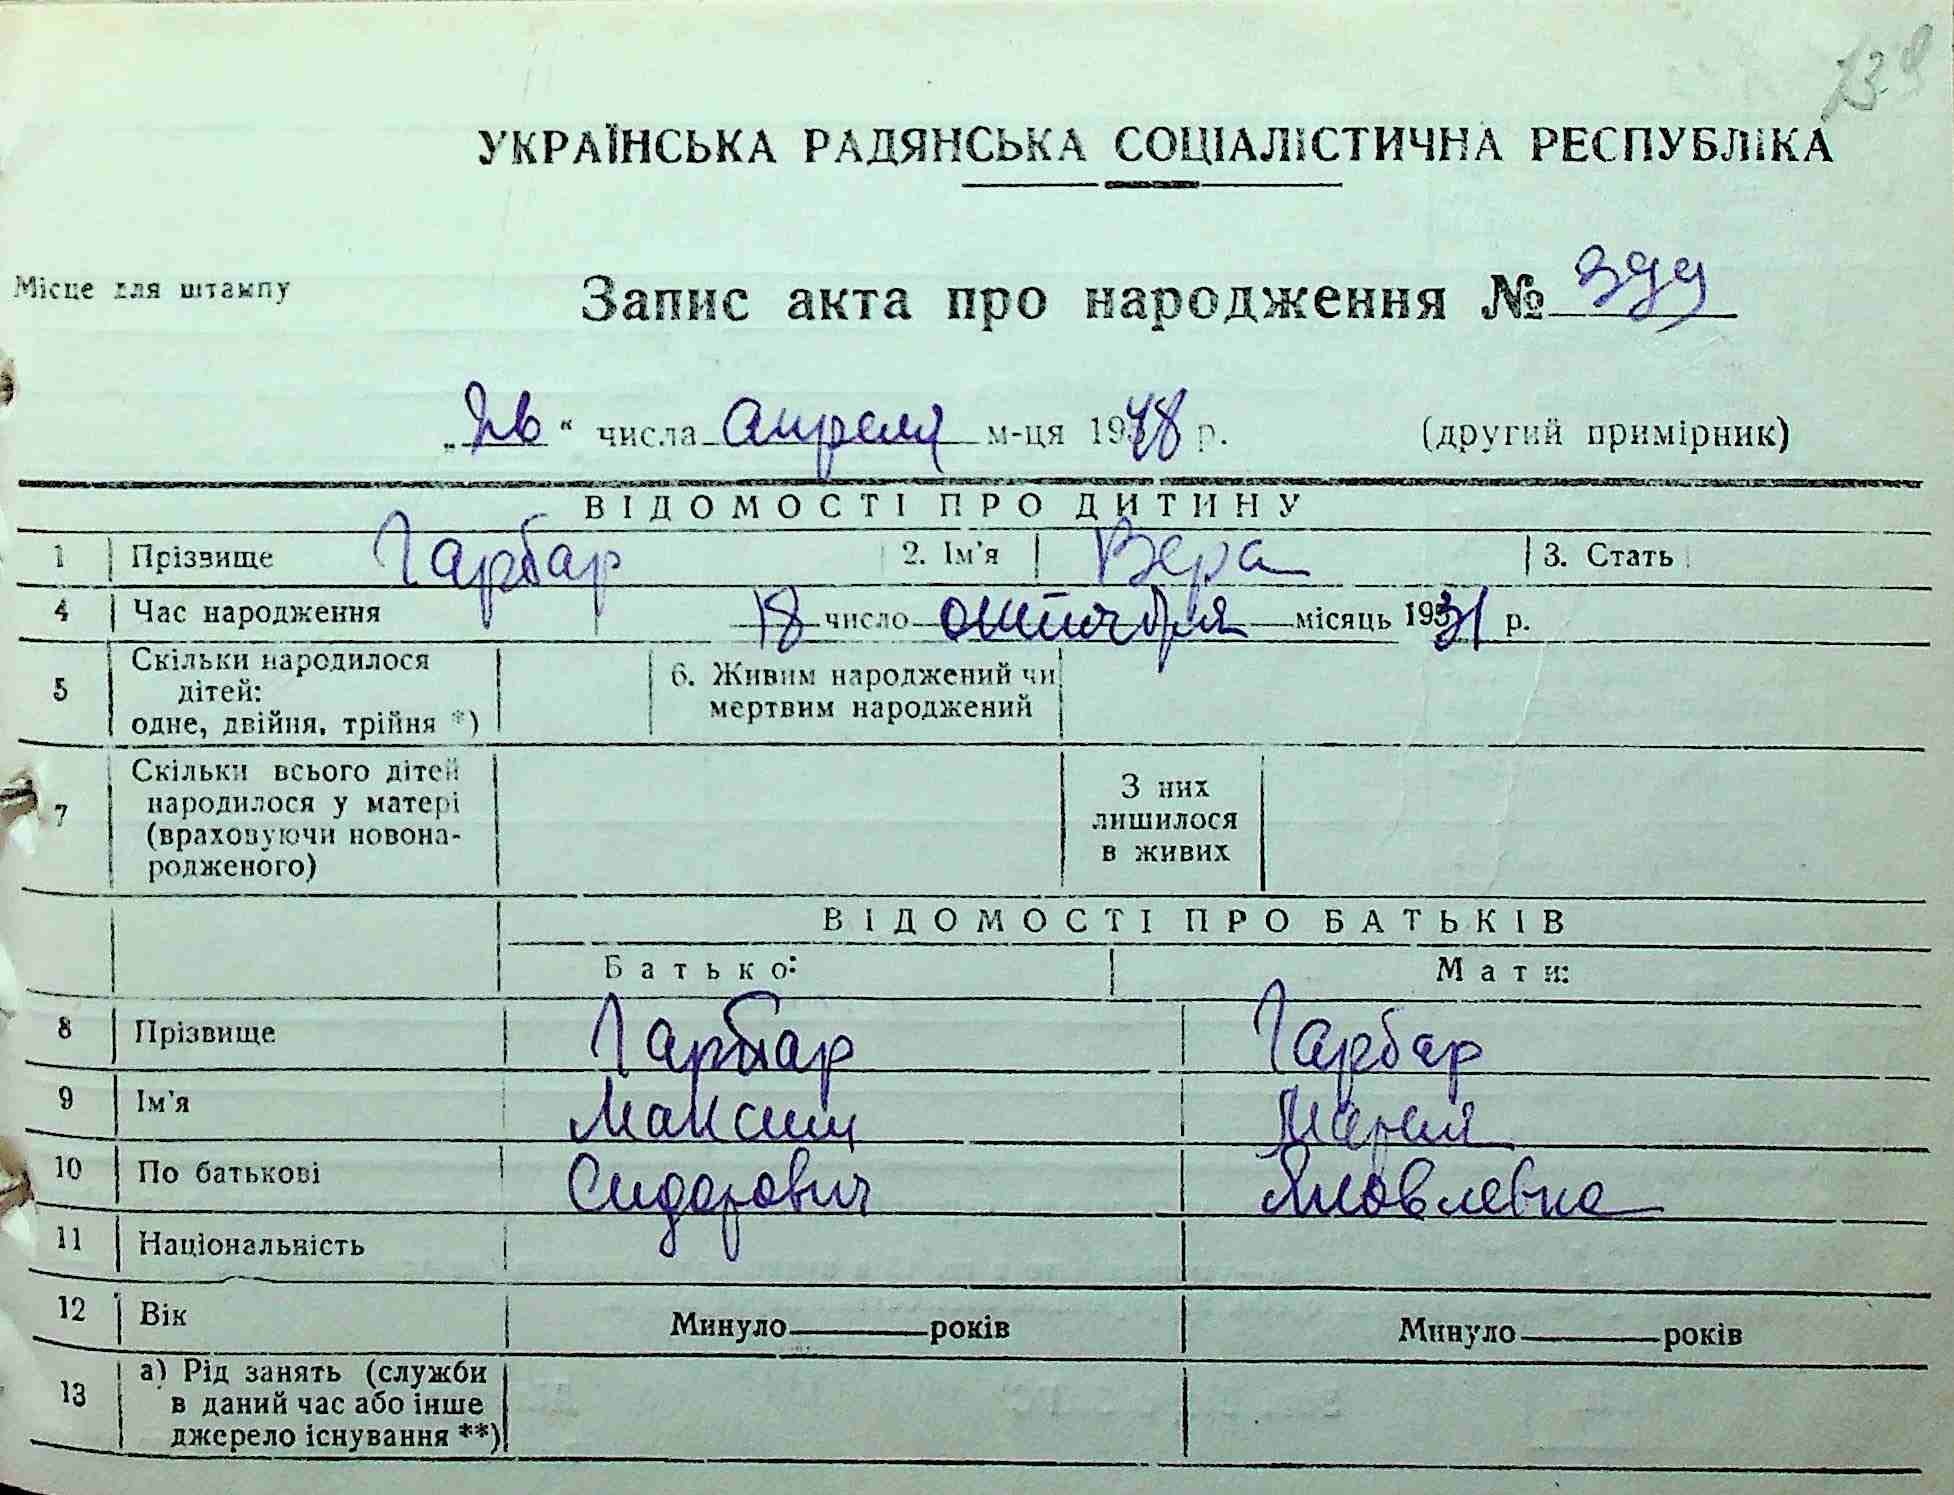 139
УКРАЇНСЬКА РАДЯНСЬКА СОЦІАЛІСТИЧНА РЕСПУБЛІКА
Місце для штампу
Запис акта про народження № 399
„26“ числа апреля м-ця 1948 р. (другий примірник)
ВІДОМОСТІ ПРО ДИТИНУ
1 Прізвище Гарбар 2. Ім'я Вера 3. Стать
4 Час народження 18 число октября місяць 1931 р.
5 Скільки народилося дітей: одне, двійня, трійня *) 6. Живим народжений чи мертвим народжений
7 Скільки всього дітей народилося у матері (враховуючи новонародженого) З них лишилося в живих
ВІДОМОСТІ ПРО БАТЬКІВ
Батько: Мати:
8 Прізвище Гарбар Гарбар
9 Ім'я Максим Мария
10 По батькові Сидорович Яковлевна
11 Національність
12 Вік Минуло років Минуло років
13 а) Рід занять (служби в даний час або інше джерело існування **)